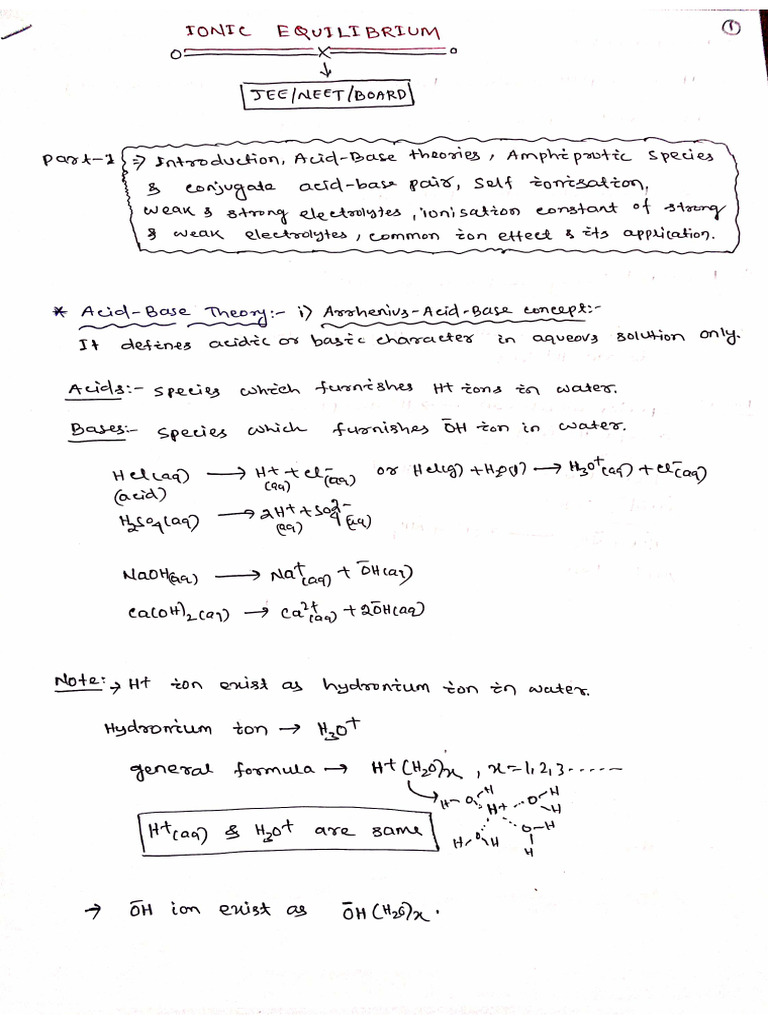 IONIC EQUILIBRIUM
①
JEE/NEET/BOARD
Part-1 ⇒ Introduction, Acid-Base theories, Amphiprotic species
& conjugate acid-base pair, Self ionisation,
weak & strong electrolytes, ionisation constant of strong
& weak electrolytes, common ion effect & its application.
* Acid-Base Theory:- i) Arrhenius-Acid-Base concept:-
It defines acidic or basic character in aqueous solution only.
Acids:- species which furnishes H+ ions in water.
Bases:- species which furnishes ŌH ion in water.
HCl(aq) → H+(aq) + Cl-(aq) or HCl(g) + H2O(l) → H3O+(aq) + Cl-(aq)
(acid)
H2SO4(aq) → 2H+(aq) + SO4 2-(aq)
NaOH(aq) → Na+(aq) + ŌH(aq)
Ca(OH)2(aq) → Ca2+(aq) + 2ŌH(aq)
Note: → H+ ion exist as hydronium ion in water.
Hydronium ion → H3O+
general formula → H+(H2O)x, x=1,2,3......
H-O H H+ O-H H
H+(aq) & H3O+ are same
O-H H
H O H
→ ŌH ion exist as ŌH(H2O)x.